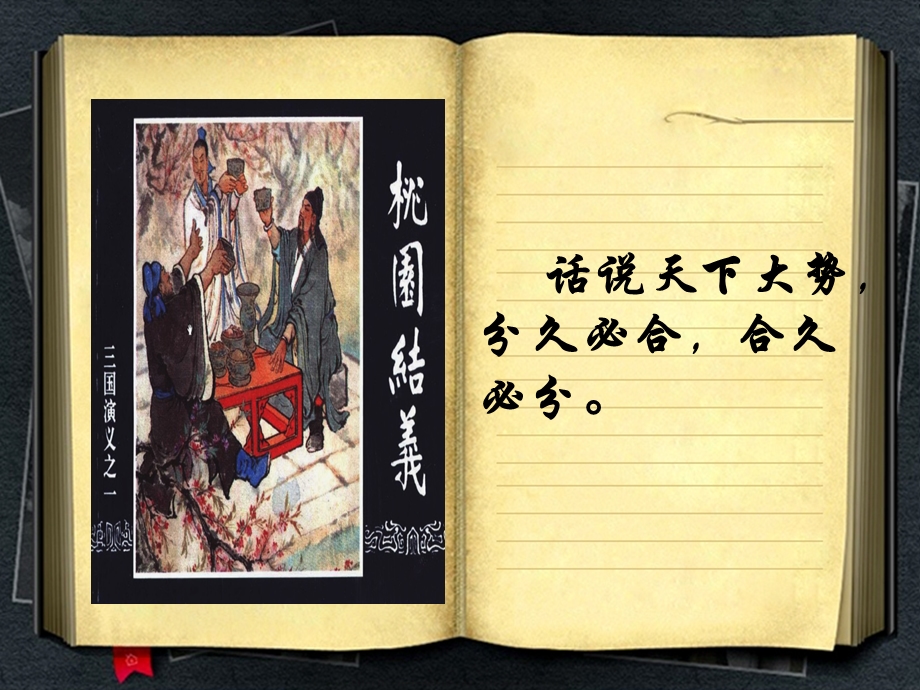 桃園結義
三国演义之一
话说天下大势，
分久必合，合久
必分。